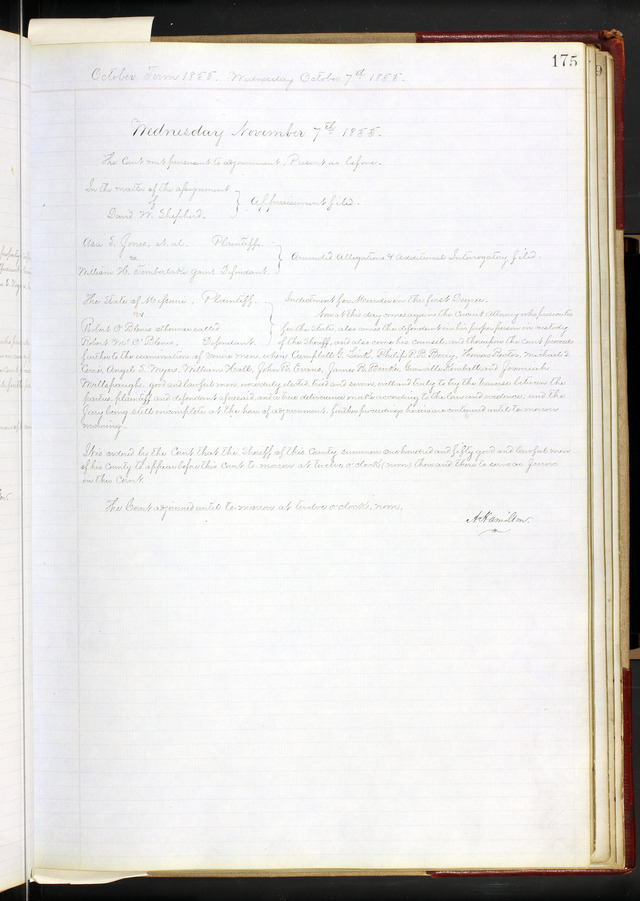 175
October Term 1855. Wednesday October 7th 1855.
Wednesday November 7th 1855.
The Court met pursuant to adjournment, Present as before.
In the matter of the assignment
of
David W. Shepherd.
Appraisement filed.
Asa S. Jones, et. al. Plaintiffs.
vs
William H. Timberlake Garnt Defendant.
Amended Allegations & Additional Interrogatory filed.
The State of Missouri, Plaintiff.
vs.
Robert O'Blenis otherwise called
Robert McO'Blenis, Defendant.
Indictment for Murder in the first Degree.
Now at this day comes again the Circuit Attorney who prosecutes
for the State, also comes the defendant in his proper person in custody
of the Sheriff, and also come his counsel, and thereupon the court proceeds
further to the examination of venire men, when Campbell G. Philip Berry, Thomas Porter, Michael S.
Cerré, Angel S. Myers, William Hall, John R. Evans, James R. and Jeremiah
Millspaugh, good and lawful men, were duly elected, tried and sworn, well and truly to try the traverse between the
parties plaintiff and defendant aforesaid, and a true deliverance make according to the law and evidence; and the
Jury being still incomplete at the hour of adjournment, further proceedings herein are continued until to morrow
morning.
It is ordered by the Court that the Sheriff of this County summon one hundred and fifty good and lawful men
of his county to appear before this court to morrow at twelve o'clock (noon) then and there to serve as Jurors
in this Court.
The Court adjourned until to morrow at twelve o'clock, noon,
A Hamilton.